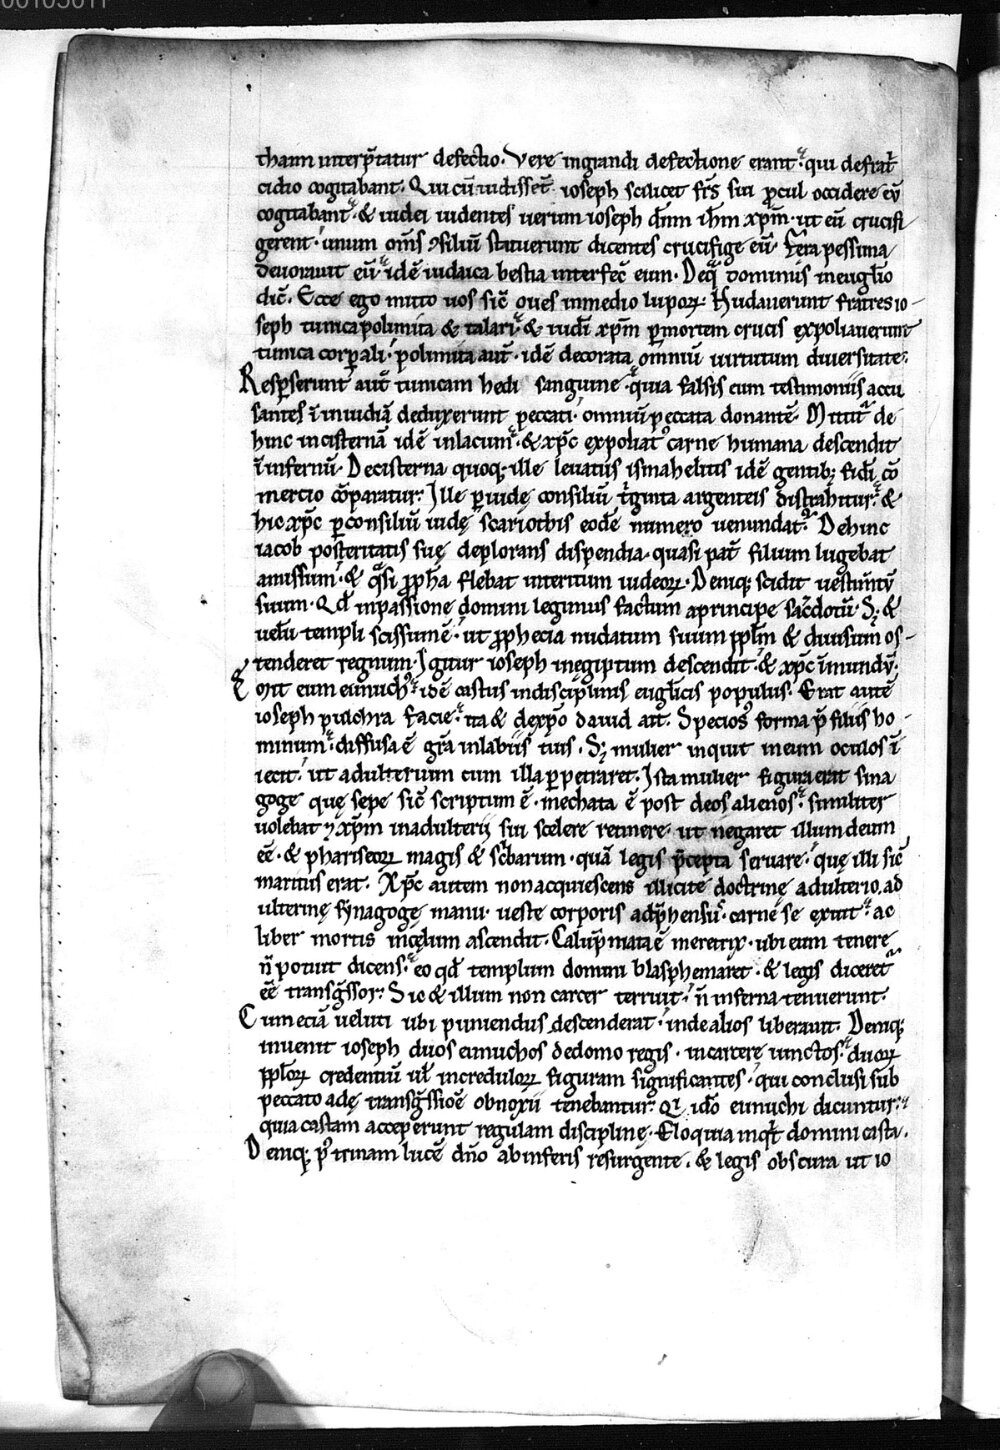 thaim interp̄tatur defectio. Vere ingrandi defectione erant. qui defrat̄
cidio cogitabant. Qui cū uidisset̄ ioseph scilicet fr̄s sui ꝓcul occidere eū
cogitabant. & iudei uidentes uerum ioseph dn̄m ih̄m xp̄m. ut eū crucifi
gerent. unum om̄s ꝯsiliū statuerunt dicentes crucifige eū. Fera pessima
deuorauit eū. idē iudaica bestia interfec̄ eum. Deq̄ dominus ineuglio
dic̄. Ecce ego mitto uos sic̄ oues inmedio lupoꝝ. Nudauerunt fratres io-
seph tunica polimita & talari. & iudi xp̄m ꝑmortem crucis expoliauerunt
tunica corꝑali. polimita aut̄. idē decorata omniū uirtutum diuersitate.
Resꝑserunt aut̄ tunicam hedi sanguine. quia falsis eum testimoniis accu
santes ī inuidiā deduxerunt peccati. omniū peccata donantē. Mittit̄ de
hinc incisternā idē inlacum. & xp̄c expoliat᷒ carne humana descendit
ī infernū. Decisterna quoq; ille leuatus ismahelitis idē gentib; fidi cō
mercio cōparatur. Ille ꝑ iudę consiliū triginta argenteis distrahitur. &
hic xp̄c ꝑ consiliū iudę scariothis eodē numero uenundat᷒. Dehinc
iacob posteritatis suę deplorans dispendia. quasi pat̄ filium lugebat
amissum. & qͣsi ꝓpha flebat interitum iudeoꝝ. Deniq; scidit uestim̄tū
suum. Qd̄ inpassione domini legimus factum aprincipe sac̄dotū. S; &
uelū templi scissum ē. ut ꝓphecia nudatum suum ppl̄m & diuisum os-
tenderet regnum. Igitur ioseph inegiptum descendit. & xp̄c īmundū.
Emit eum eunuch᷒. idē castus indisciplinis euglicis populus. Erat autē
ioseph pulchra facie. ita & dexp̄o dauid ait. Specios᷒ forma p̄ filiis ho-
minum. diffusa ē gr̄a inlabiis tuis. S; mulier inquit ineum oculos ī
iecit. ut adulterium cum illa ꝑpetraret. Ista mulier figura erat sina
goge quę sepe sic̄ scriptum ē. mechata ē post deos alienos. similiter
uolebat ⁊ xp̄m inadulterij sui scelere retinere. ut negaret illum deum
eē. & phariseoꝝ magis & scbarum. quā legis p̄cepta seruare. quę illi sic̄
maritus erat. Xp̄c autem nonacquiescens illicite doctrinę adulterio. ad
ulterinę synagogę manu. ueste corporis adp̄hensū. carne se exuit. ac
liber mortis incęlum ascendit. Calup̄mata ē meretrix. ubi eum tenere
n̄ potuit dicens. eo qd̄ templum domini blasphemaret. & legis diceret̄
eē transḡssor. Sic & illum non carcer terruit. n̄ inferna tenuerunt.
Cum eciā ueluti ubi puniendus descenderat. inde alios liberauit. Deniq;
inuenit ioseph duos eunuchos dedomo regis. incarcere iunctos. duoꝝ
ppl̄oꝝ credentiū ul̄ increduloꝝ figuram significantes. qui conclusi sub
peccato adę transḡssioē obnoxii tenebantur. Qi ido eunuchi dicuntur.
quia castam acceperunt regulam disciplinę. Eloquia inqt̄ domini casta.
Deniq; p᷒ trinam lucē dn̄o abinferis resurgente. & legis obscura ut io